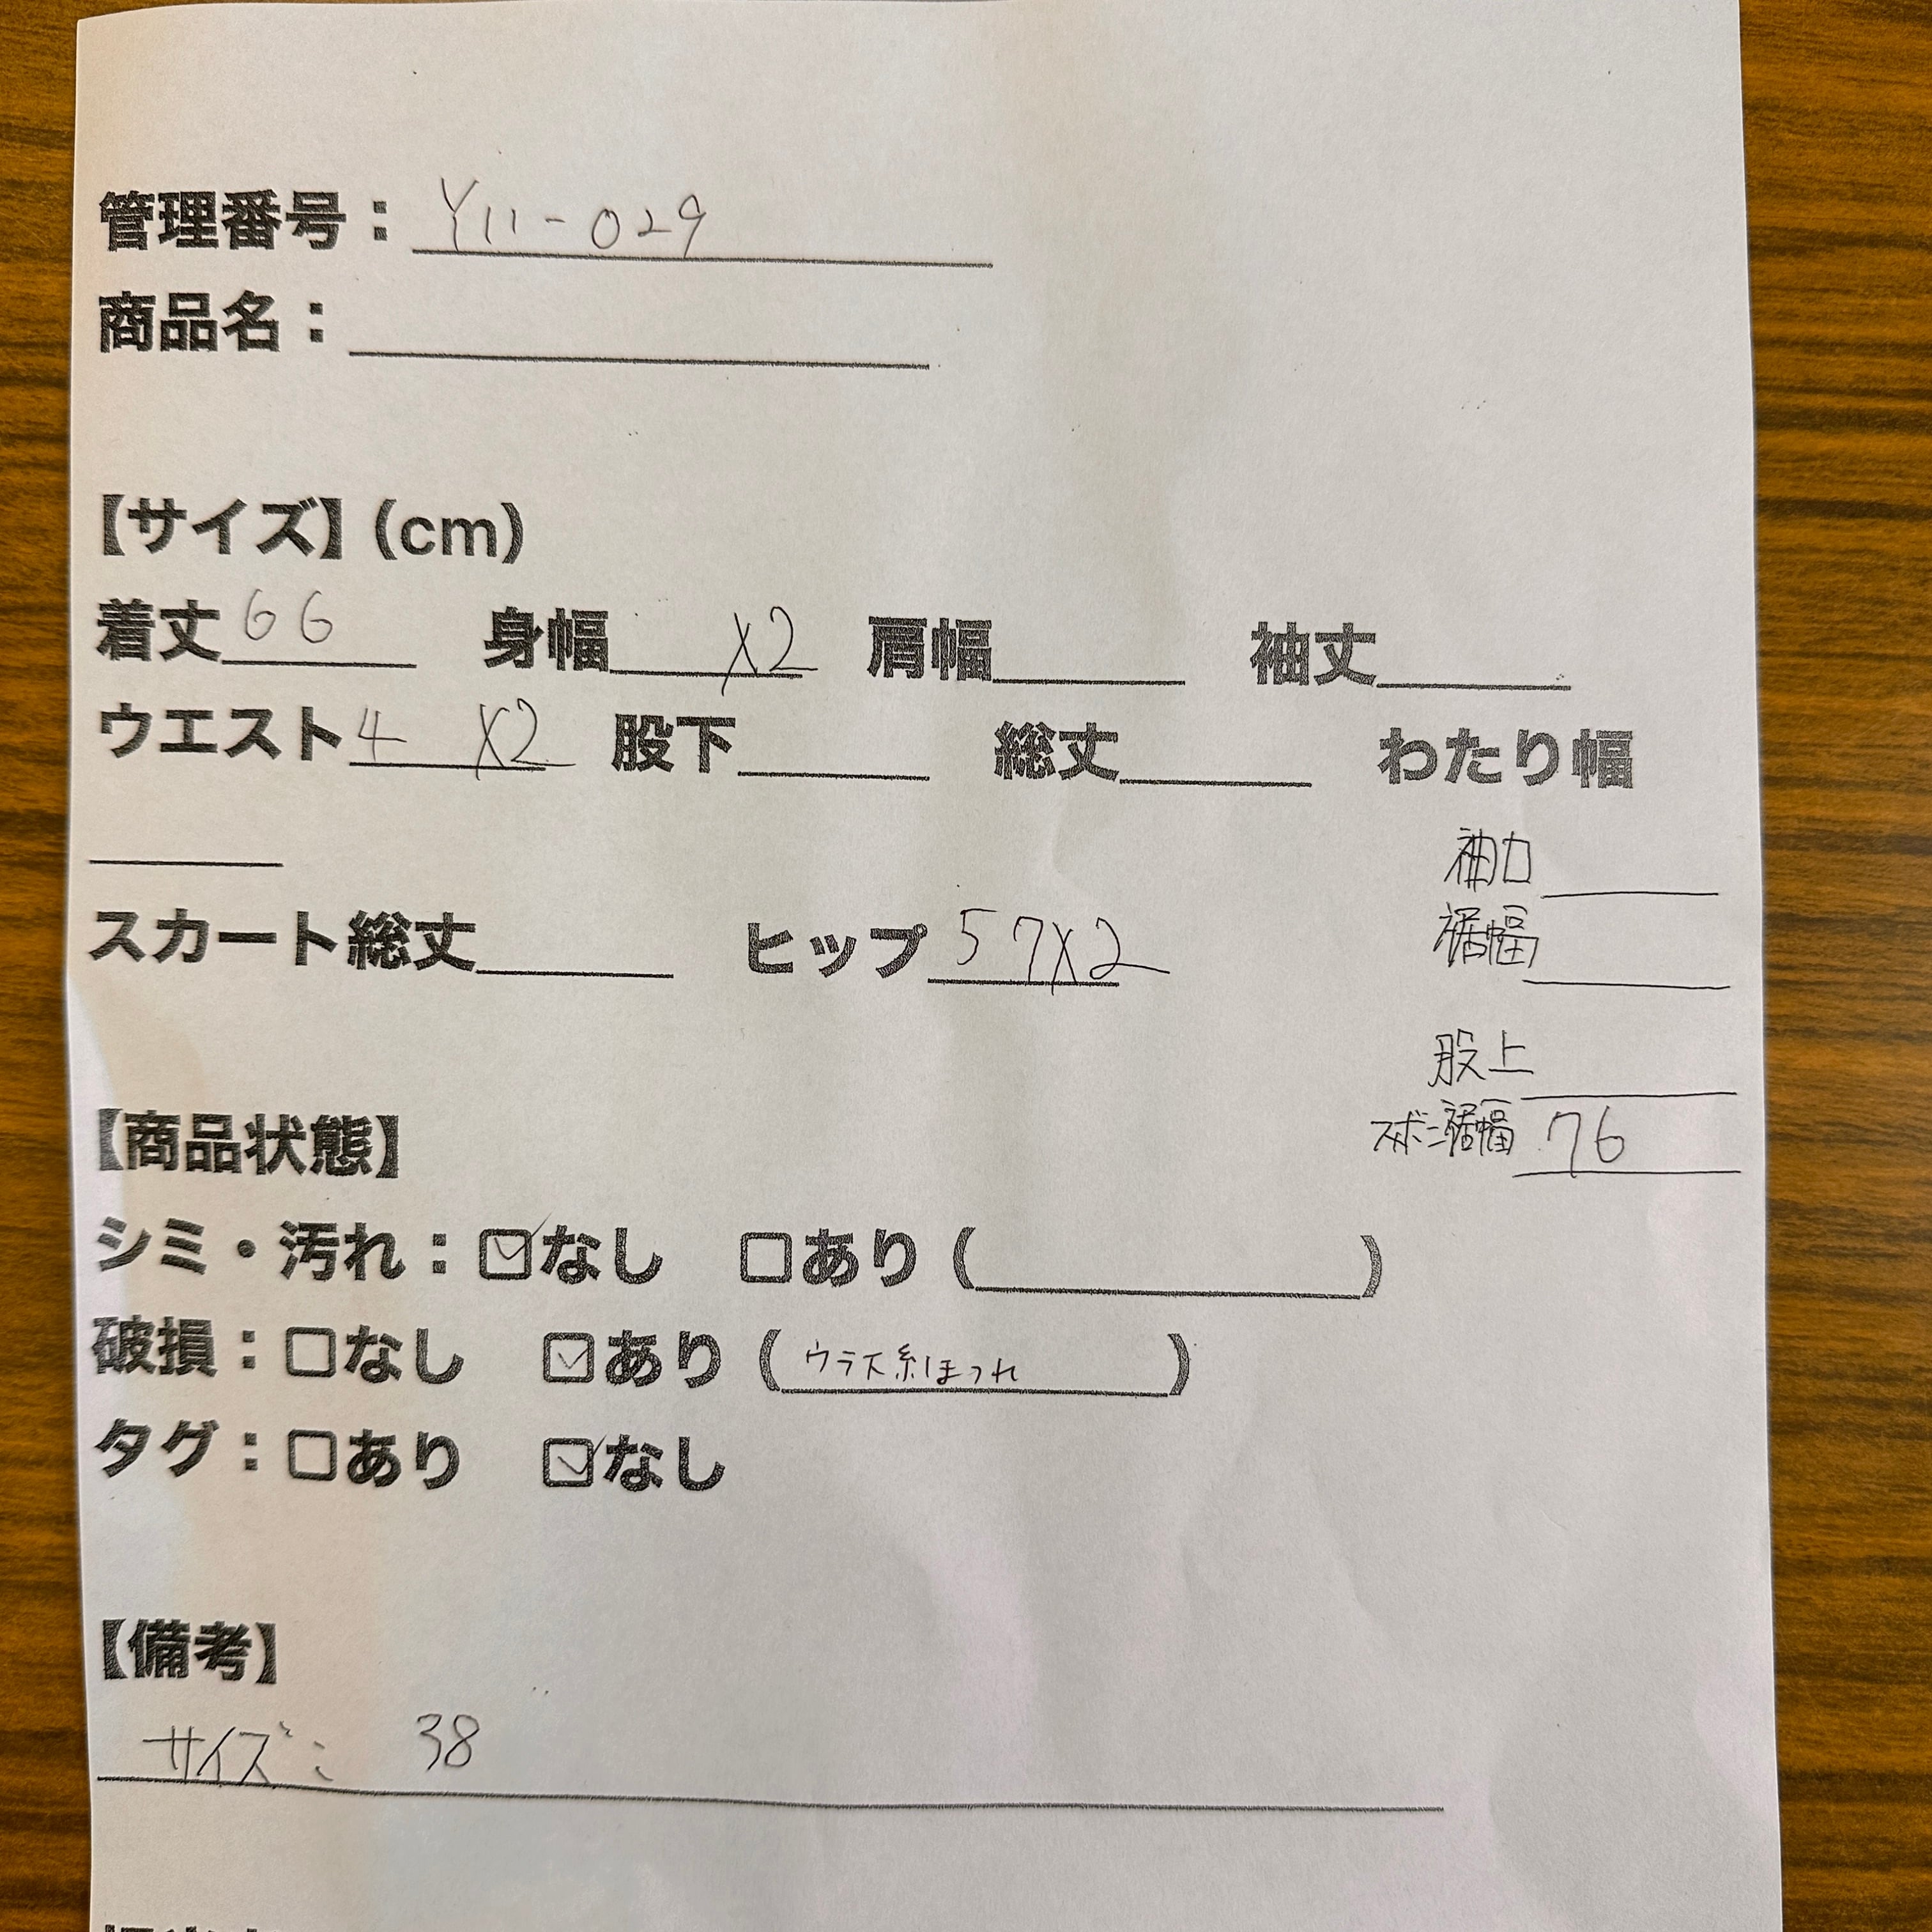 管理番号：Y11-029
商品名：
【サイズ】(cm)
着丈66 身幅 X2 肩幅 袖丈
ウエスト4 X2 股下 総丈 わたり幅
袖口
裾幅
スカート総丈 ヒップ57X2
股上
ズボン裾幅 76
【商品状態】
シミ・汚れ：☑なし □あり ( )
破損：□なし ☑あり (ウラ糸ほつれ)
タグ：□あり ☑なし
【備考】
サイズ： 38